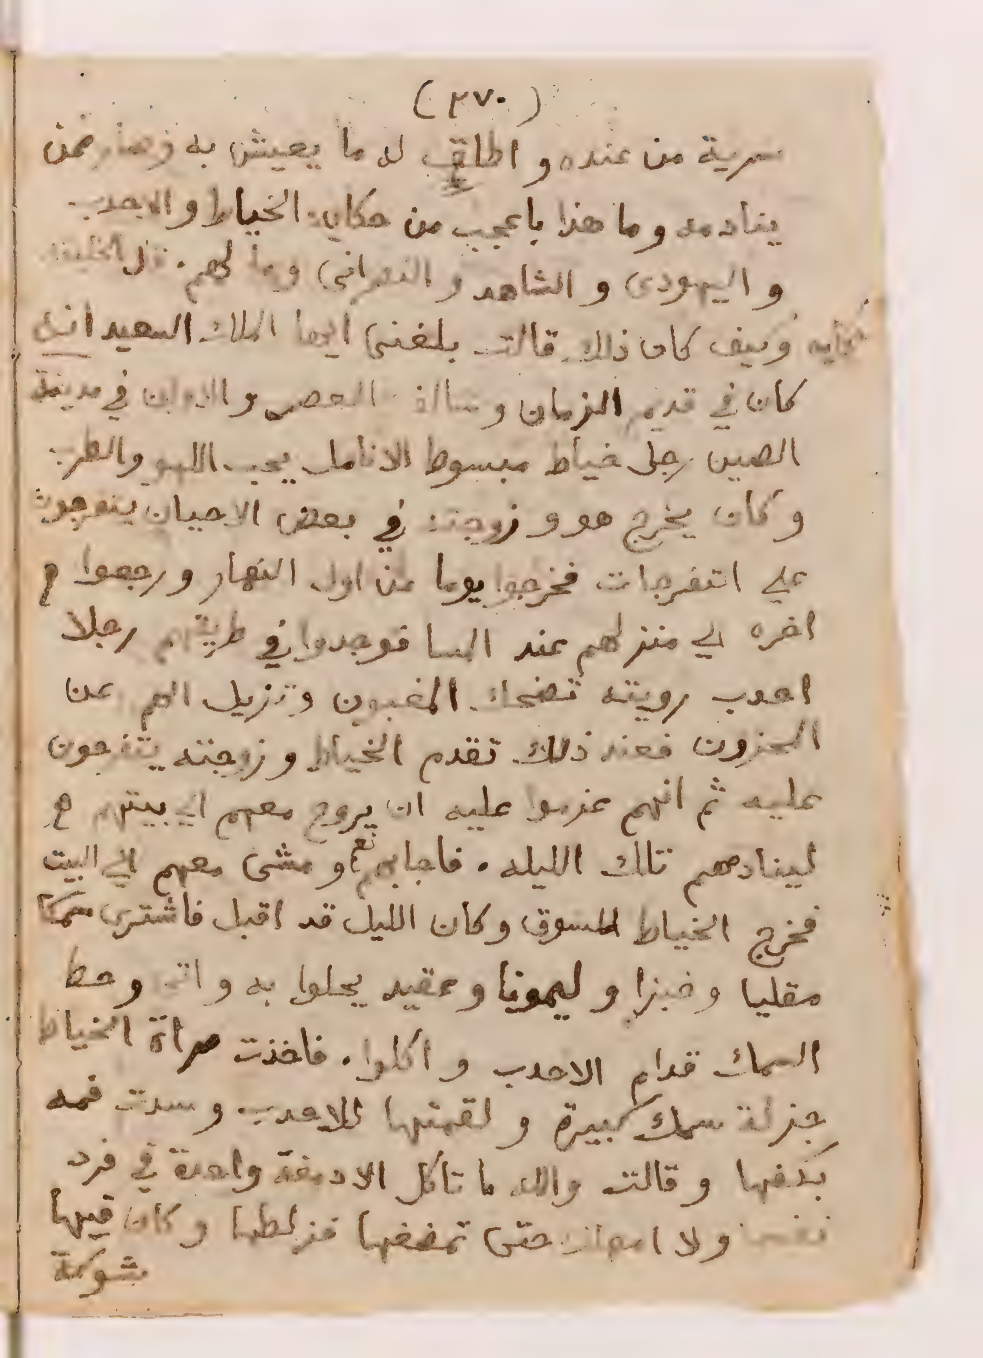 (٢٧٠)
سرية من عنده و اطلق له ما يعيش به وصار ممن
ينادمه وما هذا باعجب من حكاية الخياط والاحدب
و اليهودي و الشاهد و النصراني وما لهم. قال الخليفة
وكيف كان ذلك قالت بلغني ايها الملك السعيد انه
كان في قديم الزمان وسالف العصر و الاوان في مدينة
الصين رجل خياط مبسوط الانامل يحب اللهو والطرب
و كان يخرج هو و زوجته في بعض الاحيان يتفرجون
علي اتفرجات فخرجوا يوما من اول النهار و رجعوا
اخره الي منزلهم عند المسا فوجدوا في طريقهم رجلا
احدب رويته تضحك المغبون وتزيل الهم عن
المحزون فعند ذلك تقدم الخياط و زوجته يتفرجون
عليه ثم انهم عزموا عليه ان يروح معهم الي بيتهم
لينادمهم تلك الليله. فاجابهم نعم و مشى معهم الي البيت
فخرج الخياط للسوق وكان الليل قد اقبل فاشترى سمكا
مقليا وخبزا و ليمونا وعقيد يحلوا به و اتى وحط
السمك قدام الاحدب و اكلوا. فاخذت مراة الخياط
جزلة سمك كبيرة و لقمتها للاحدب وسدت فمه
بكفها و قالت والله ما تاكل الا دفعة واحدة في فرد
نفس ولا امهلك حتى تمضغها فزلطها و كان فيها
شوكة